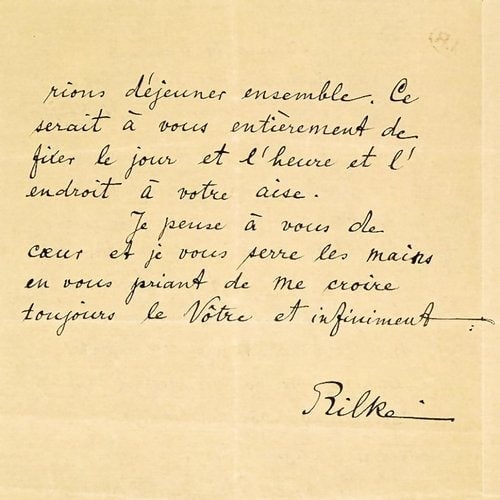 rions déjeuner ensemble. Ce
serait à vous entièrement de
fixer le jour et l'heure et l'
endroit à votre aise.
Je pense à vous de
cœur et je vous serre les mains
en vous priant de me croire
toujours le Vôtre et infiniment :
Rilke